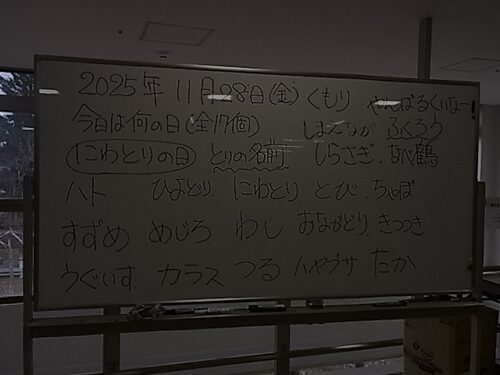 2025年 11月28日(金) くもり やんばるくいなー
今日は何の日(全17個) しまえなが ふくろう
にわとりの日 とりの名前 しらさぎ. なべ鶴
ハト ひよどり にわとり とび. ちゃぼ
すずめ めじろ わし おながどり きつつき
うぐいす カラス つる ハヤブサ たか